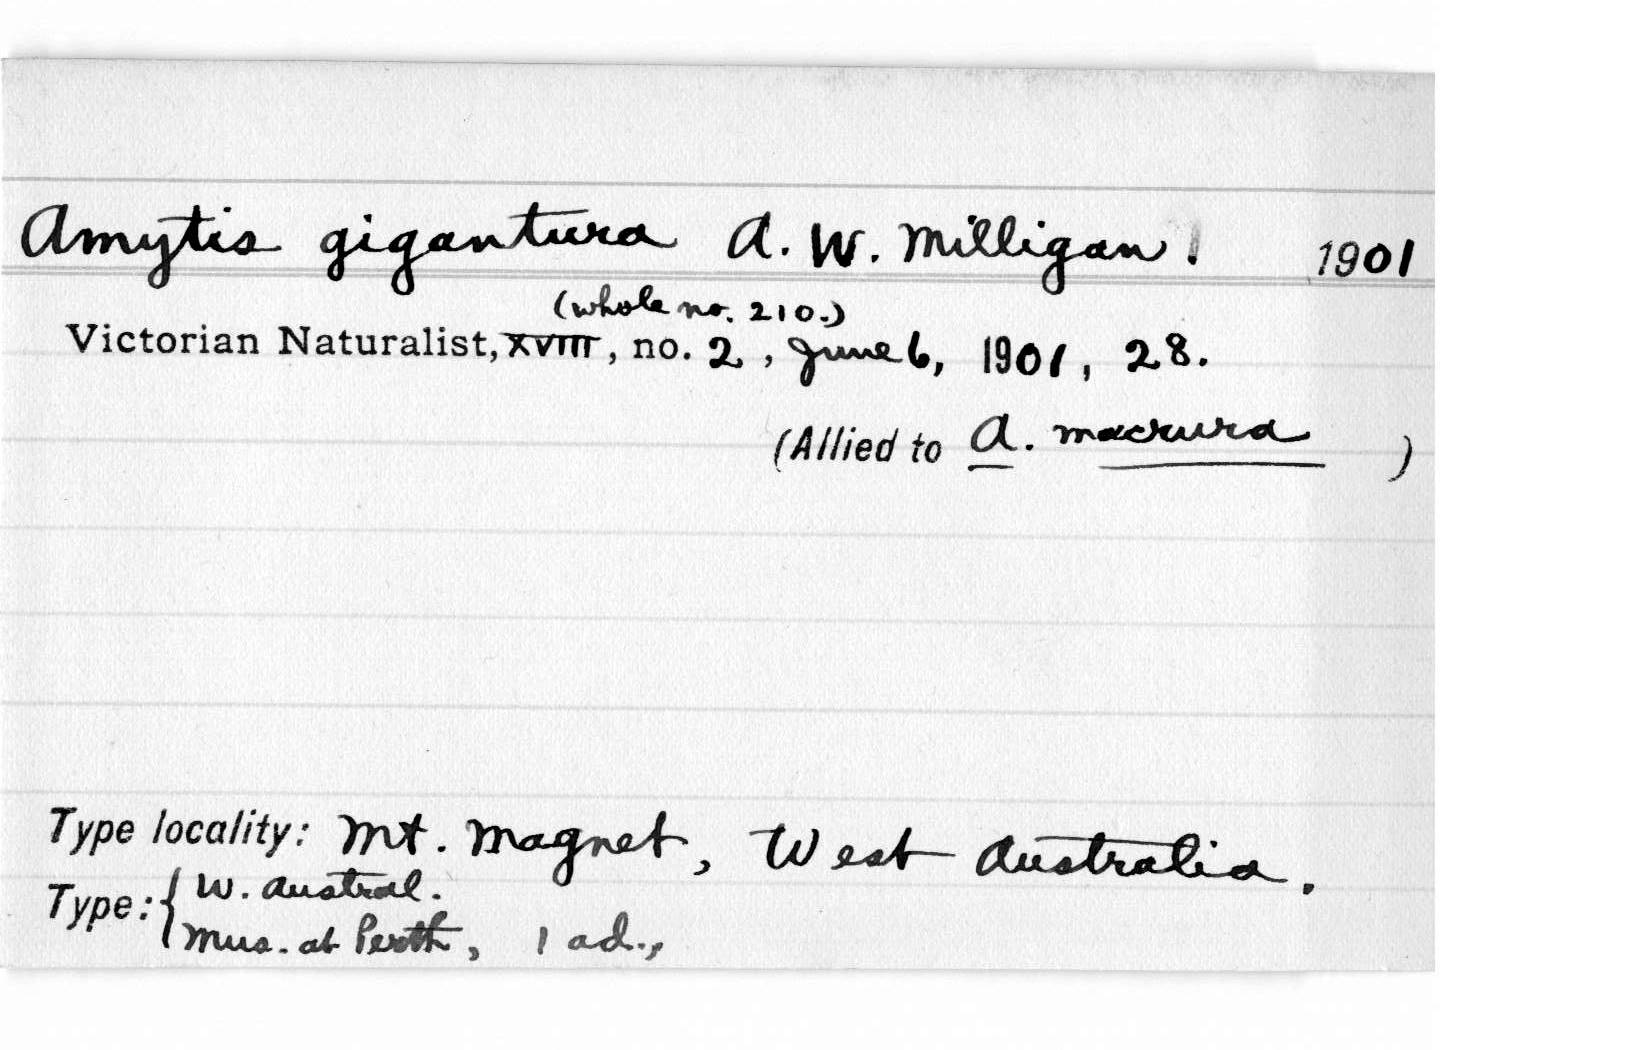 Amytis gigantura A. W. Milligan! 1901
(whole no. 210.)
Victorian Naturalist, XVIII, no. 2, June 6, 1901, 28.
(Allied to A. macrura )
Type locality: Mt. Magnet, West Australia.
Type: { W. Austral.
Mus. at Perth, 1 ad.,